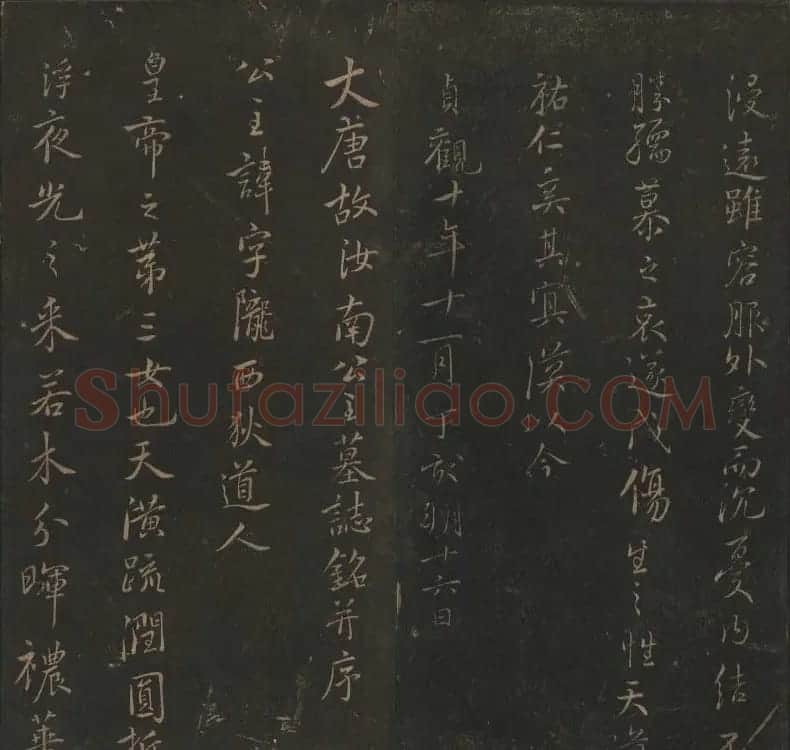 浸遠雖容服外變而沉憂內結不
勝孺慕之哀遂成傷生之性天道
祐仁奚其冥漠以今
貞觀十年十一月丁亥朔十六日
大唐故汝南公主墓誌銘并序
公主諱字隴西狄道人
皇帝之第三女也天潢疏潤圓折
浮夜光之采若木分暉禯華
Shufaziliao.COM